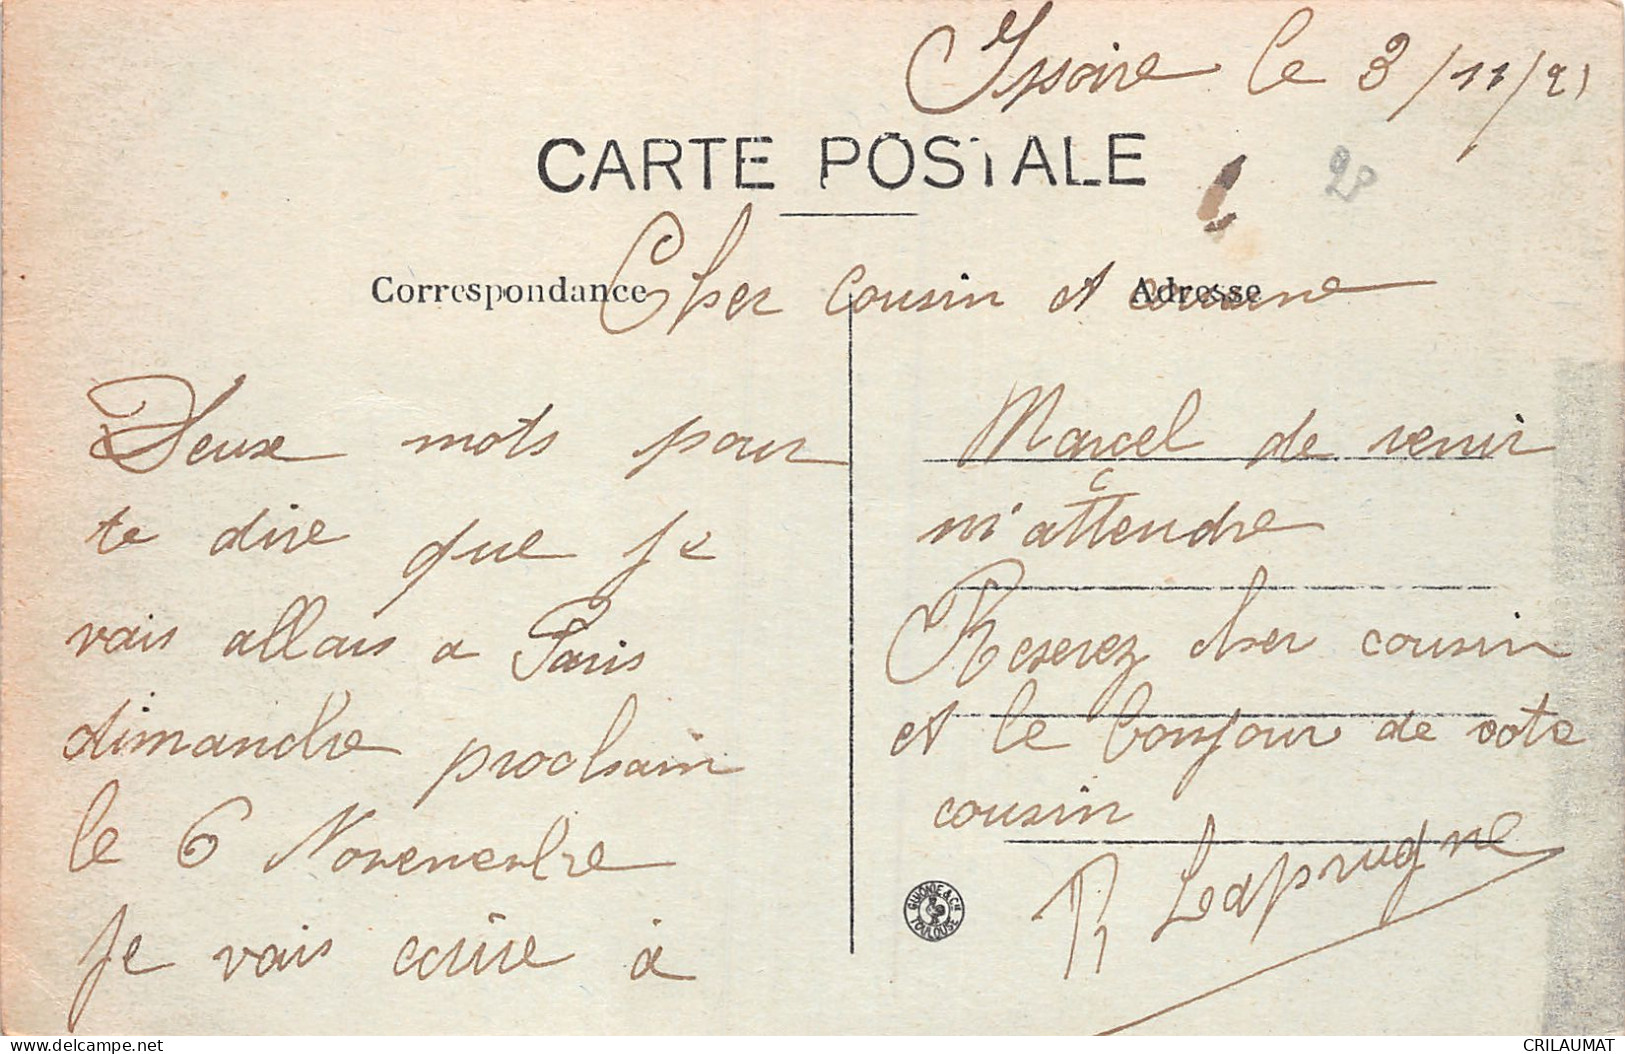 Issoire le 3/11/21
CARTE POSTALE
28
Correspondance
Adresse
Cher cousin et cousine
Deux mots pour
te dire que je
vais allais a Paris
dimanche prochain
le 6 Novenenbre
je vais ecrire à
Marcel de venir
m'attendre
Reserez cher cousin
et le bonjour de vote
cousin
R Laprugne
GUIONIE & Cie
TOULOUSE
delcampe.net
CRILAUMAT